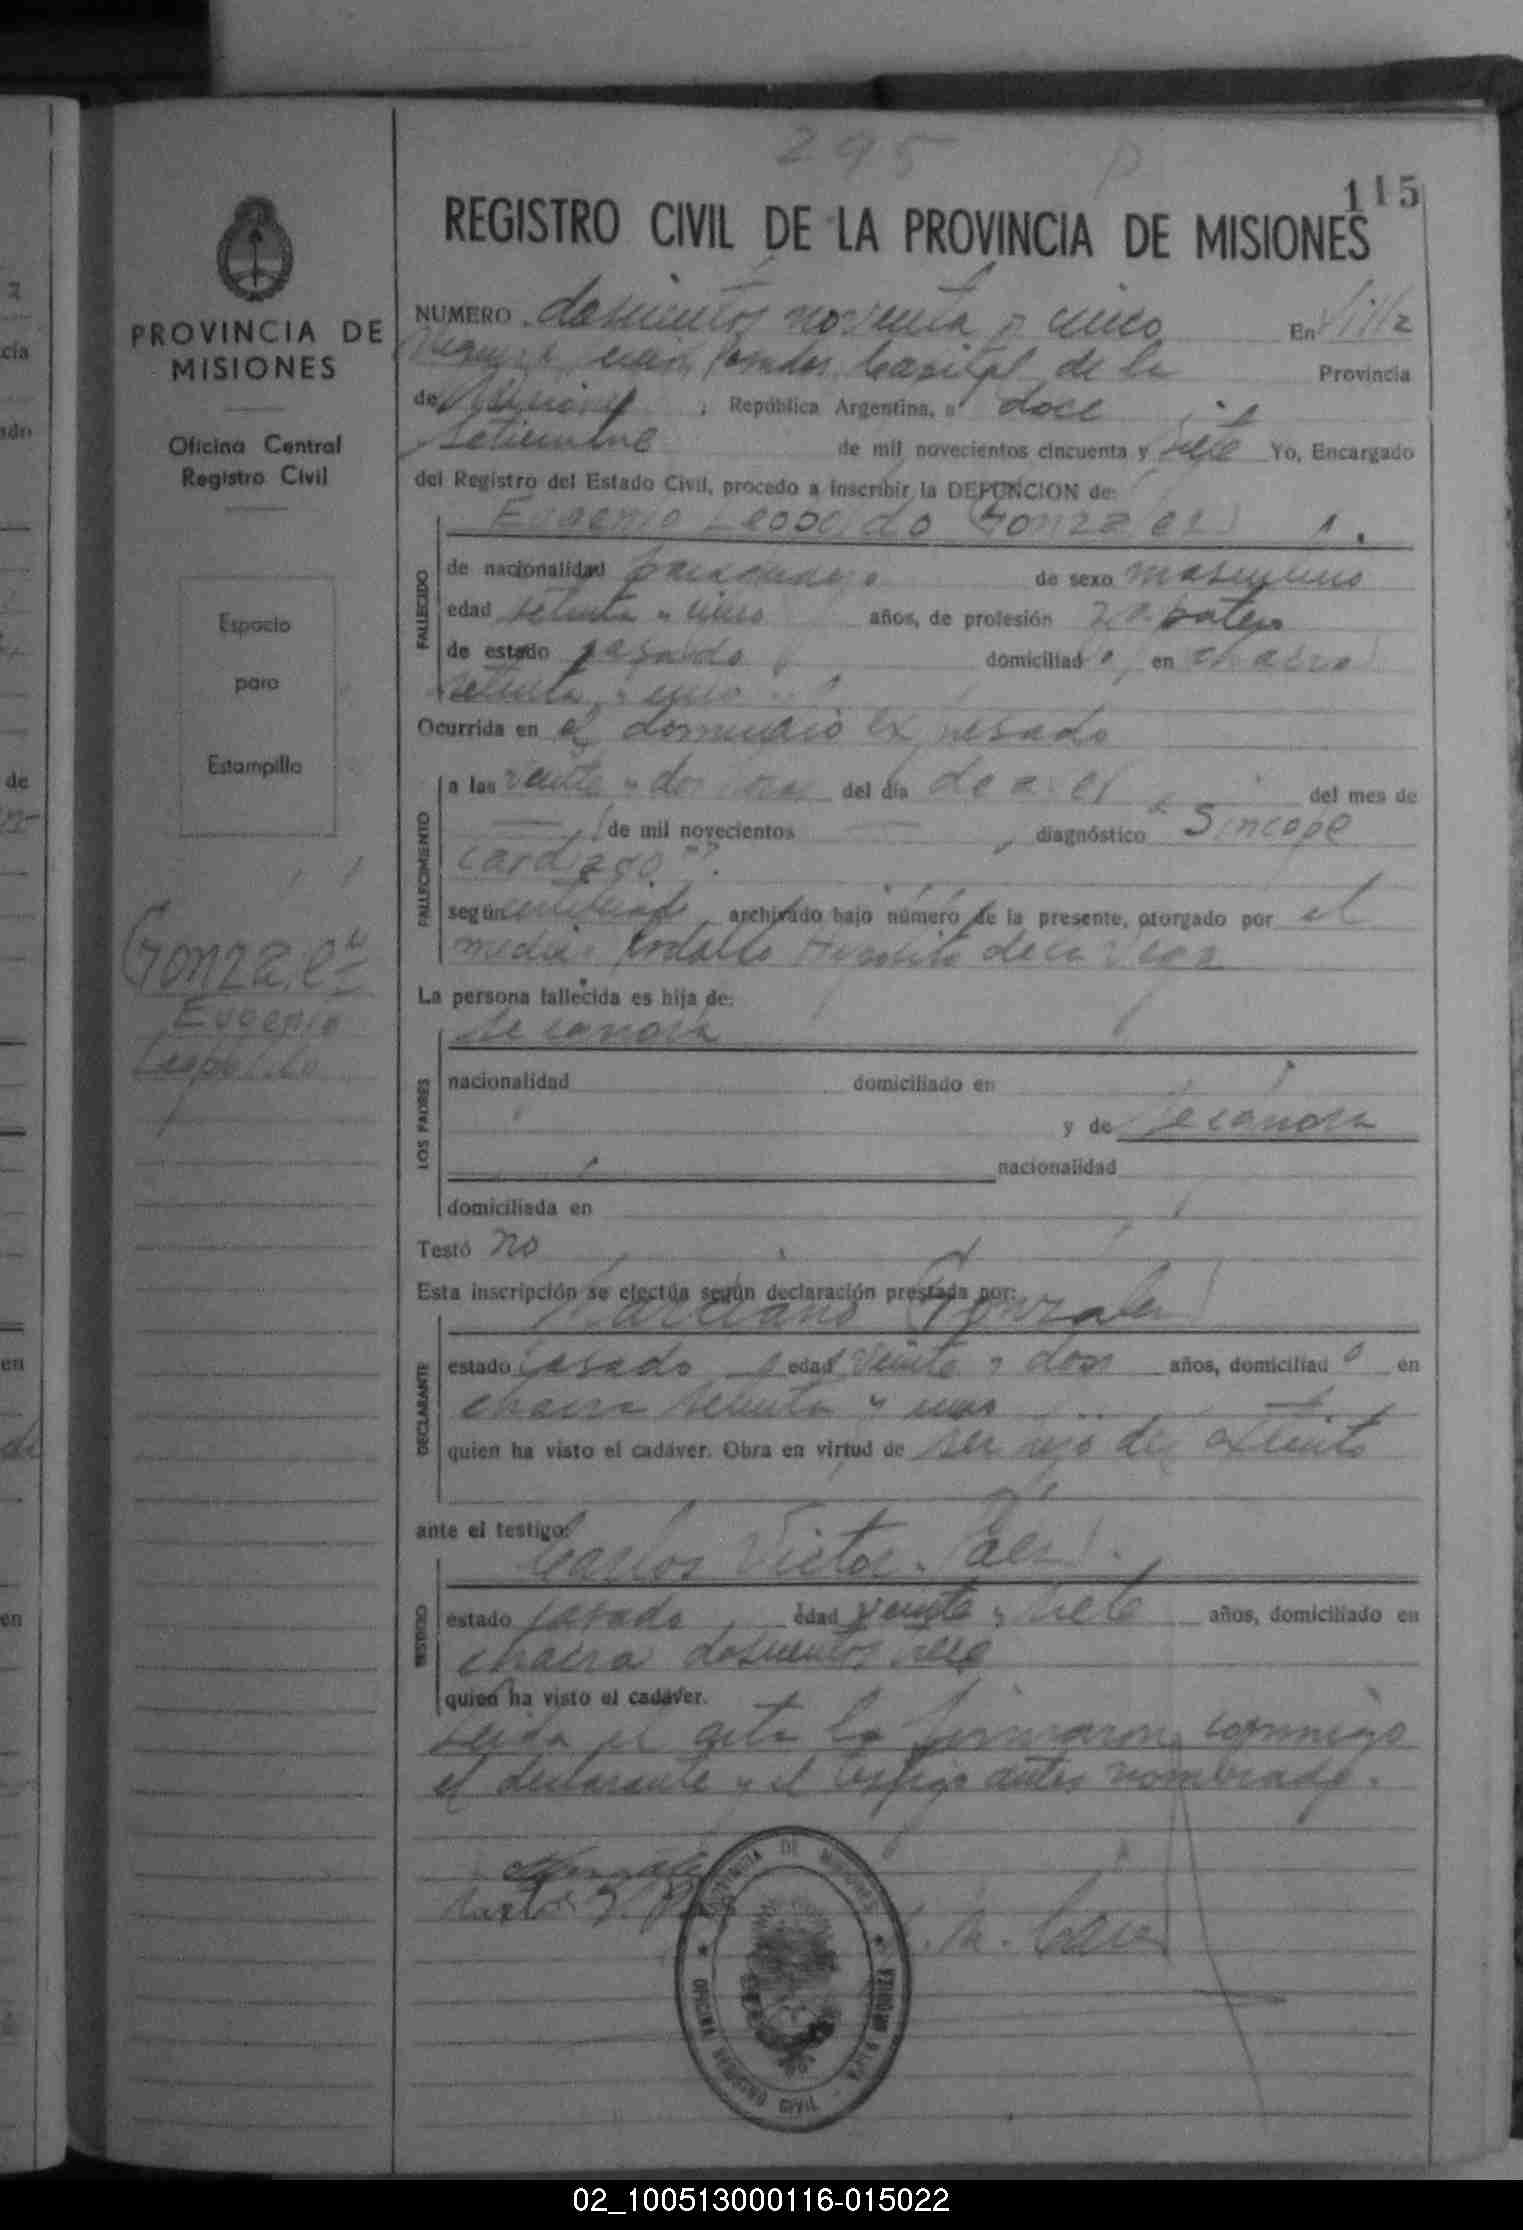 295
115
REGISTRO CIVIL DE LA PROVINCIA DE MISIONES
PROVINCIA DE
MISIONES
Oficina Central
Registro Civil
Espacio
para
Estampilla
Gonzalez
Eugenio
Leopoldo
NUMERO doscientos noventa y cinco En Villa
Capital de la Provincia
de Misiones, República Argentina, a doce
setiembre de mil novecientos cincuenta y siete Yo, Encargado
del Registro del Estado Civil, procedo a inscribir la DEFUNCION de:
Eugenio Leopoldo Gonzalez
FALLECIDO
de nacionalidad de sexo masculino
edad setenta y cinco años, de profesión zapatero
de estado casado domiciliado en chacra
setenta y uno
Ocurrida en el domicilio expresado
FALLECIMIENTO
a las veinte y dos horas del día de ayer del mes de
de mil novecientos diagnóstico "Sincope
cardiaco".
según certificado archivado bajo número de la presente, otorgado por el
medico Rodolfo Hypolito de la Vega
La persona fallecida es hija de:
LOS PADRES
Se ignora
nacionalidad domiciliado en
y de Se ignora
nacionalidad
domiciliada en
Testó no
Esta inscripción se efectúa según declaración prestada por:
DECLARANTE
Marciano Gonzalez
estado casado edad veinte y dos años, domiciliado en
chacra setenta y uno
quien ha visto el cadáver. Obra en virtud de ser hijo del extinto
ante el testigo:
TESTIGO
Carlos Victor Paez
estado casado edad veinte y siete años, domiciliado en
chacra doscientos
quien ha visto el cadáver.
Leida el acta la firmaron conmigo
el declarante y el testigo antes nombrado.
PROVINCIA DE MISIONES
OFICINA REGISTRO CIVIL
02_100513000116-015022